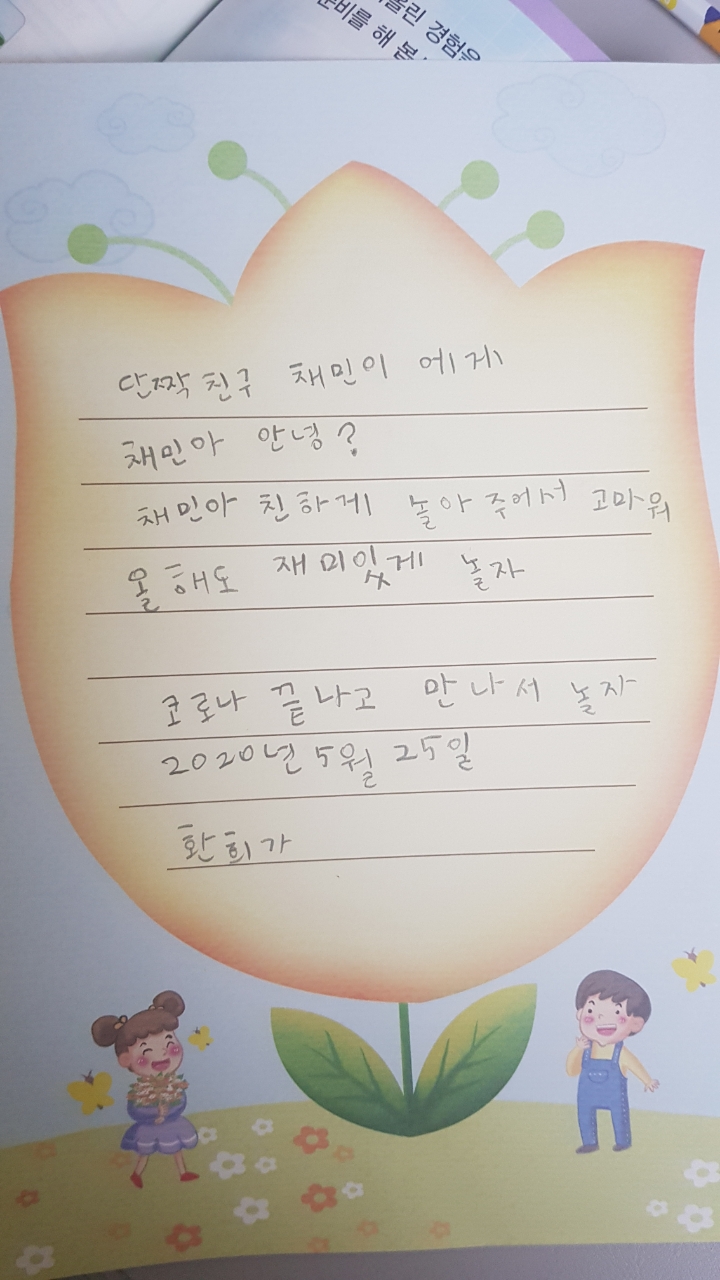 올린 경험을
준비를 해 봅
단짝친구 채민이 에게
채민아 안녕?
채민아 친하게 놀아 주어서 고마워
올해도 재미있게 놀자
코로나 끝나고 만나서 놀자
2020년 5월 25일
환희가